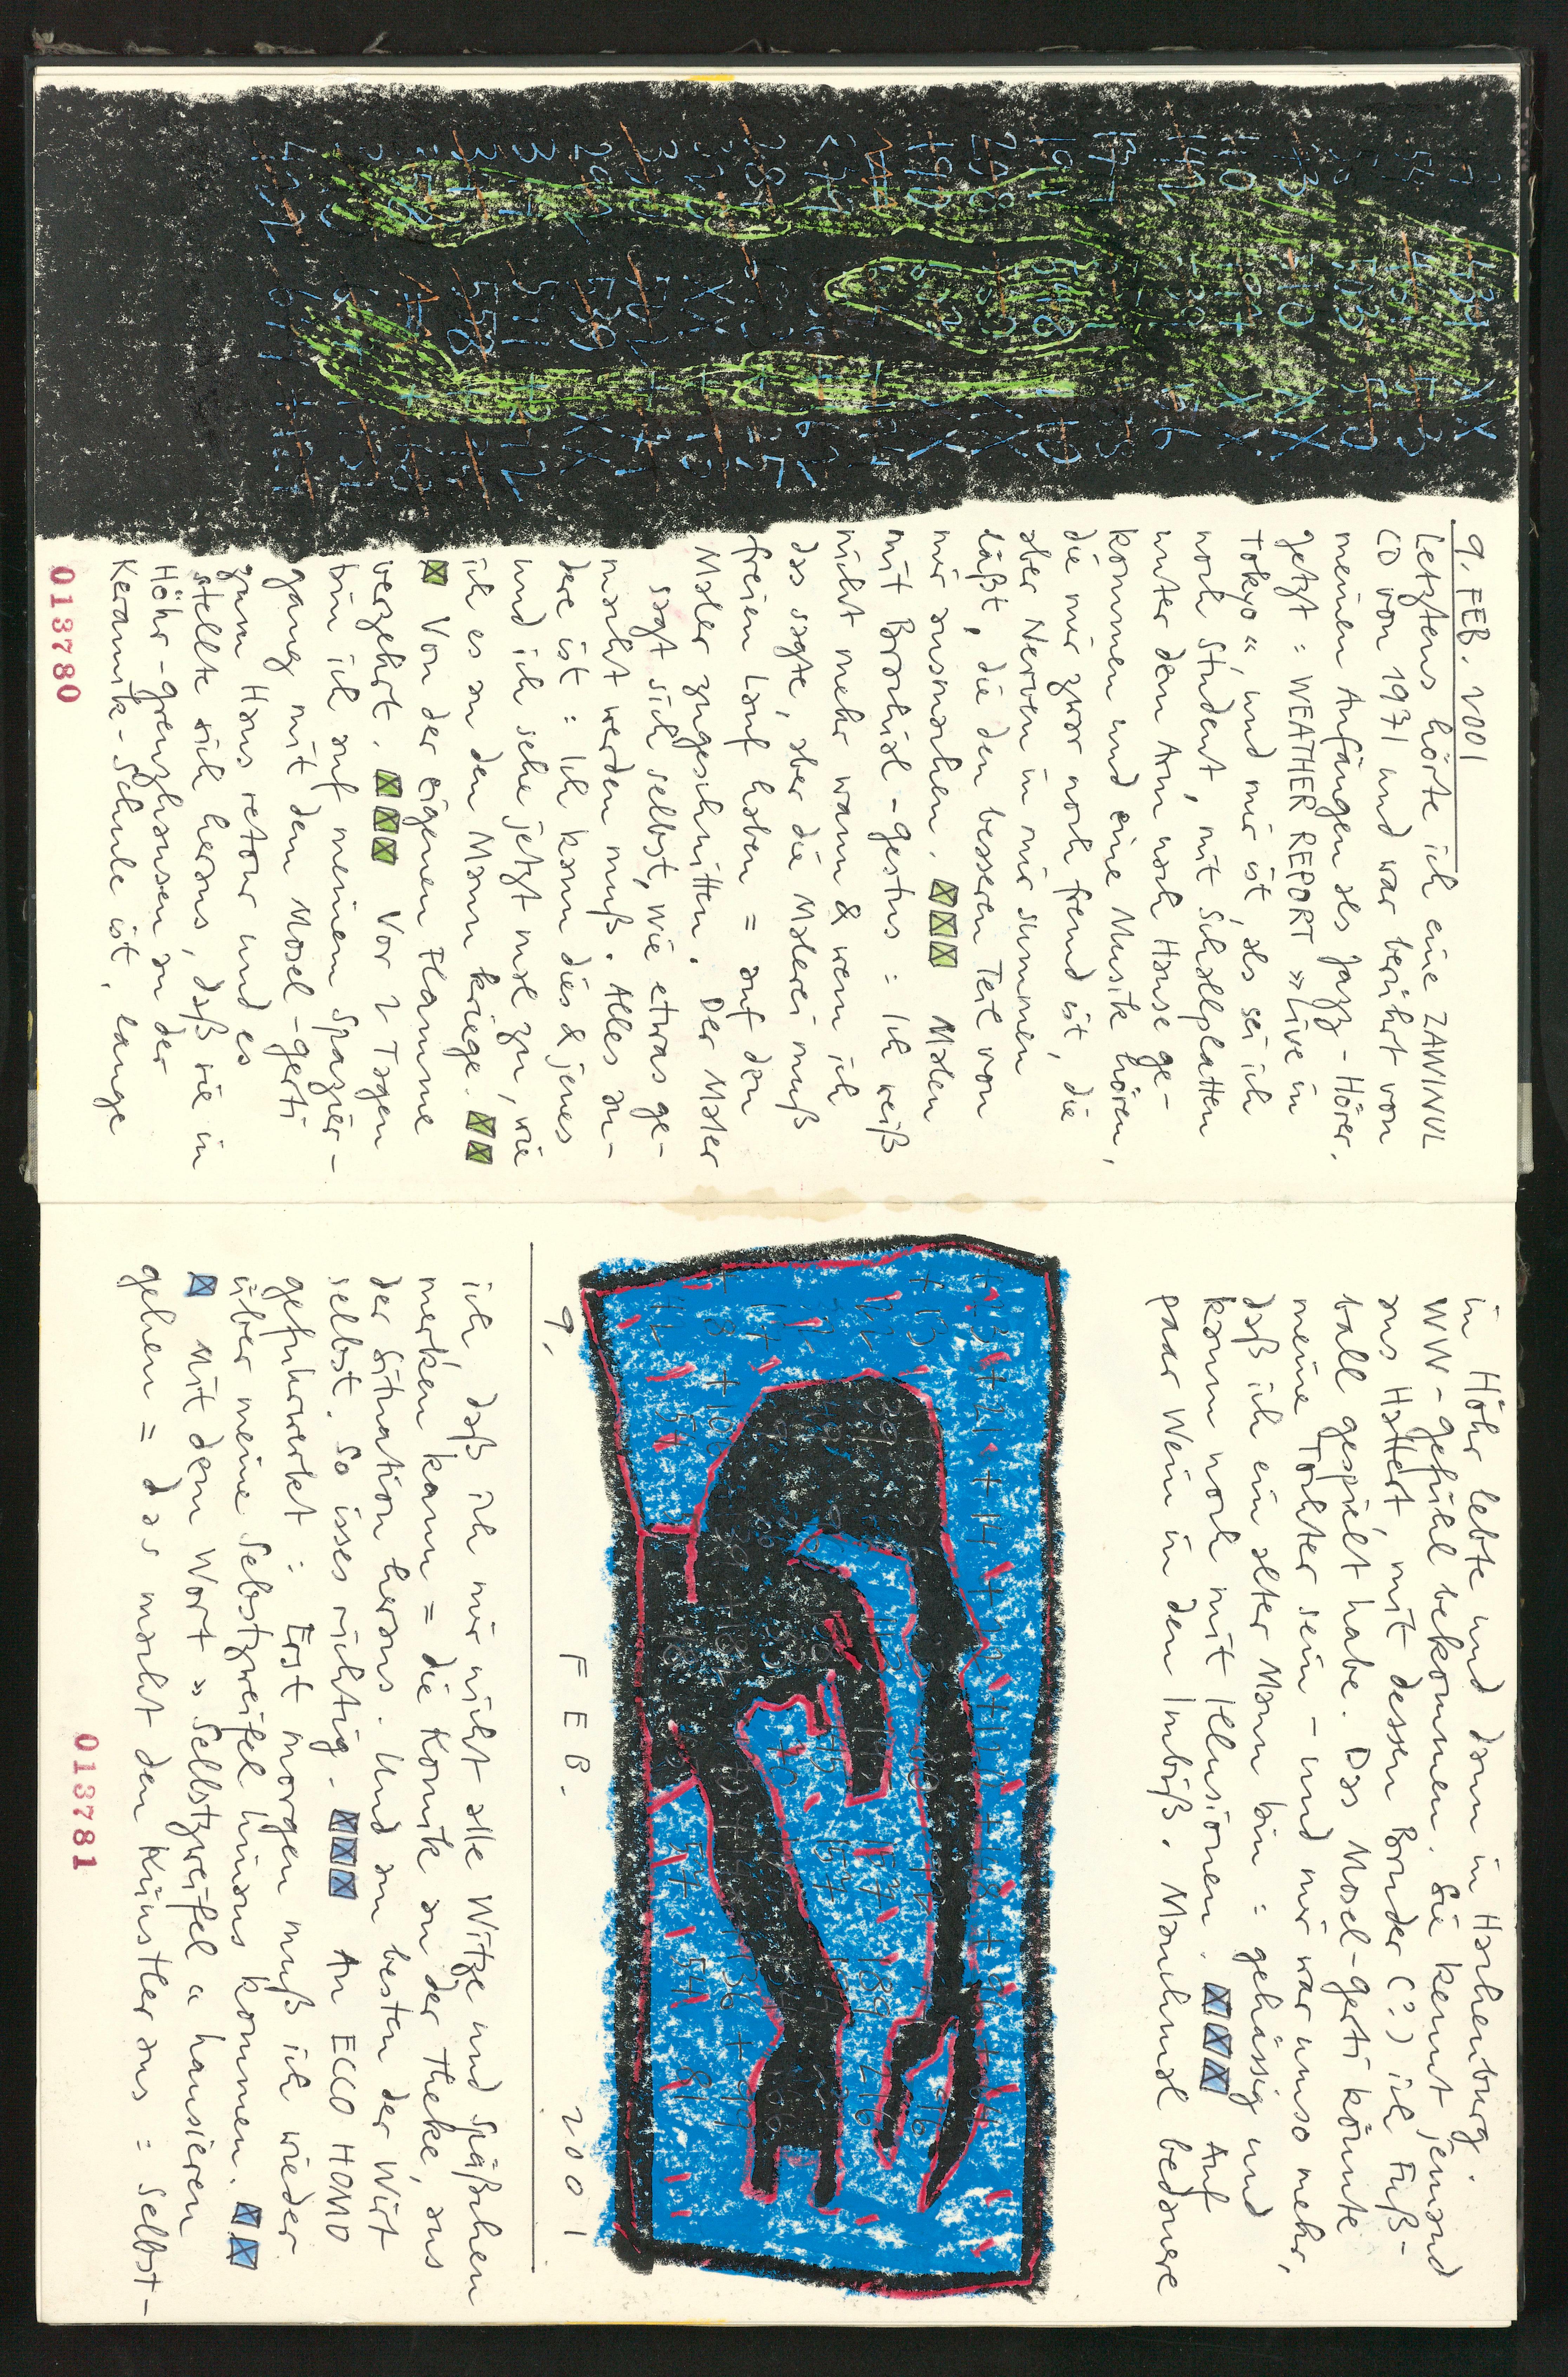 9. FEB. 2001
Letztens hörte ich eine ZAWINUL
CD von 1971 und war berührt von
meinen Anfängen als Jazz-Hörer.
Jetzt: WEATHER REPORT »Live in
Tokyo« und mir ist, als sei ich
noch Student, mit Schallplatten
unter dem Arm nach Hause ge-
kommen und eine Musik hören,
die mir zwar noch fremd ist, die
aber Nerven in mir summen
läßt, die den besseren Teil von
mir ausmachen. Malen
mit Brachial-gestus: Ich weiß
nicht mehr wann & wem ich
das sagte, aber die Malerei muß
freien Lauf haben = auf den
Maler zugeschnitten. Der Maler
sagt sich selbst, wie etwas ge-
macht werden muß. Alles an-
dere ist: Ich kann dies & jenes
und ich sehe jetzt mal zu, wie
ich es an den Mann kriege.
Von der eigenen Flamme
verzehrt. Vor 2 Tagen
bin ich auf meinem Spazier-
gang mit den Mosel-gerti
zum Haus retour und es
stellte sich heraus, daß sie in
Höhr-grenzhausen an der
Keramik-Schule ist, lange
013780
in Höhr lebte und dann in Hachenburg.
WW-gefühl bekommen. Sie kennt jemand
aus Hattert, mit dessen Bruder (?) ich Fuß-
ball gespielt habe. Das Mosel-gerti könnte
meine Tochter sein – und mir war umso mehr,
daß ich ein alter Mann bin: gehässig und
kaum noch mit Illusionen. Auf
paar Wein in den Imbiß. Manchmal bedauere
9. FEB. 2001
ich daß ich mir nicht alle Witze und Späßchen
merken kann = die Komik an der Theke, aus
der Situation heraus. Und am besten der Wirt
selbst. So isses richtig. An ECCO HOMO
gefuhrwerkt: Erst morgen muß ich wieder
über meine Sebstzweifel hinaus kommen.
Mit dem Wort »Selbstzweifel« hausieren
gehen = das macht den Künstler aus: Selbst-
013781